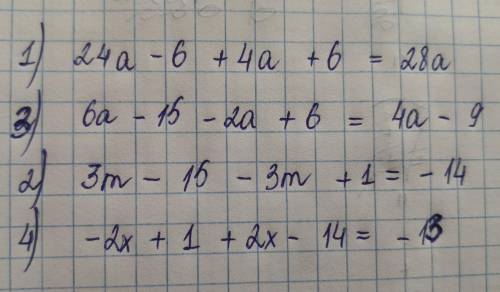 1) 24a - 6 + 4a + 6 = 28a
3) 6a - 15 - 2a + 6 = 4a - 9
2) 3m - 15 - 3m + 1 = - 14
4) -2x + 1 + 2x - 14 = - 13